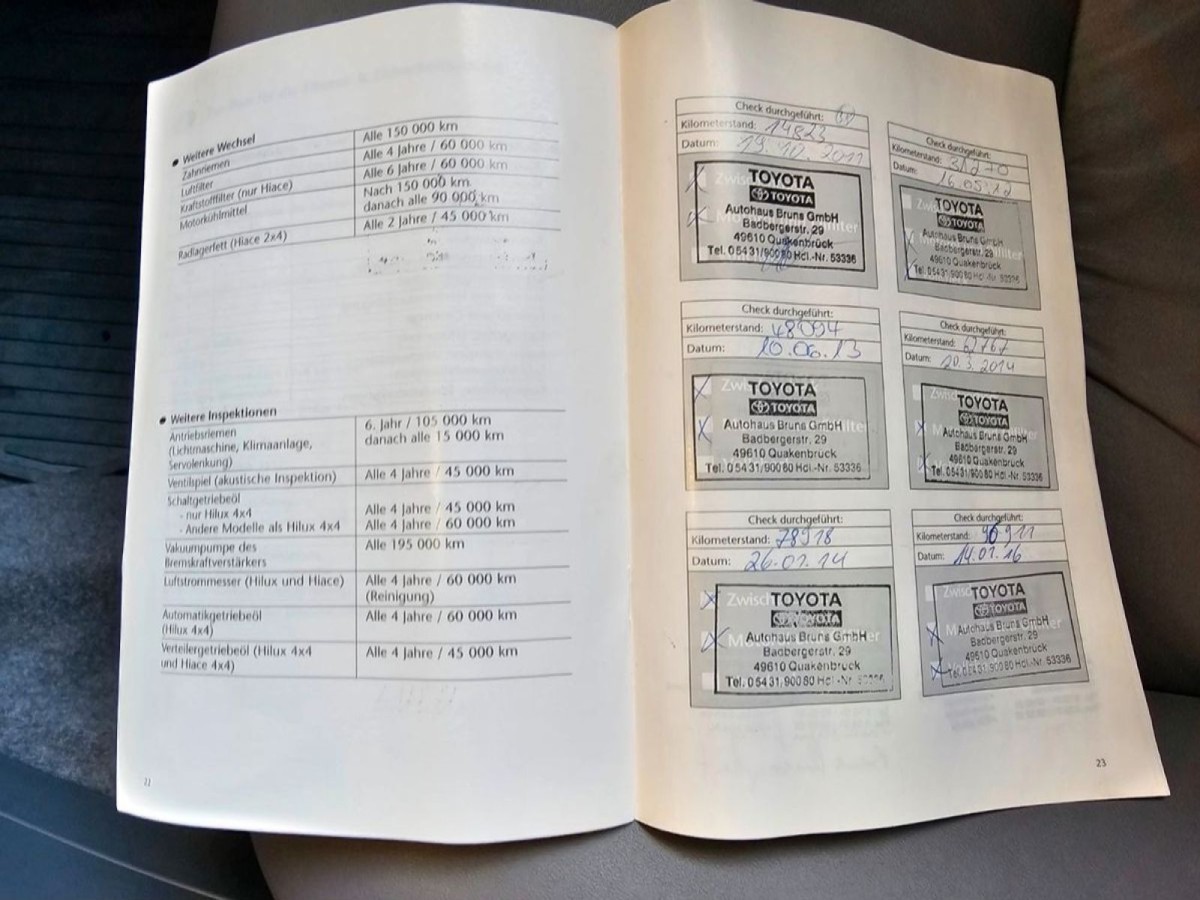 • Weitere Wechsel
Zahnriemen Alle 150 000 km
Luftfilter Alle 4 Jahre / 60 000 km
Kraftstofffilter (nur Hiace) Alle 6 Jahre / 60 000 km
Motorkühlmittel Nach 150 000 km
danach alle 90 000 km
Radlagerfett (Hiace 2x4) Alle 2 Jahre / 45 000 km
• Weitere Inspektionen
Antriebsriemen 6. Jahr / 105 000 km
(Lichtmaschine, Klimaanlage, danach alle 15 000 km
Servolenkung)
Ventilspiel (akustische Inspektion) Alle 4 Jahre / 45 000 km
Schaltgetriebeöl
- nur Hilux 4x4 Alle 4 Jahre / 45 000 km
- Andere Modelle als Hilux 4x4 Alle 4 Jahre / 60 000 km
Vakuumpumpe des Alle 195 000 km
Bremskraftverstärkers
Luftstrommesser (Hilux und Hiace) Alle 4 Jahre / 60 000 km
(Reinigung)
Automatikgetriebeöl Alle 4 Jahre / 60 000 km
(Hilux 4x4)
Verteilergetriebeöl (Hilux 4x4 Alle 4 Jahre / 45 000 km
und Hiace 4x4)
Check durchgeführt:
Kilometerstand: 14823
Datum: 19.10.2011
TOYOTA
TOYOTA
Autohaus Bruns GmbH
Badbergerstr. 29
49610 Quakenbrück
Tel. 05431/90080 Hdl.-Nr. 53336
Check durchgeführt:
Kilometerstand:
Datum: 16.05.12
TOYOTA
TOYOTA
Autohaus Bruns GmbH
Badbergerstr. 29
49610 Quakenbrück
Tel. 05431/90080 Hdl.-Nr. 53336
Check durchgeführt:
Kilometerstand: 48094
Datum: 10.06.13
TOYOTA
TOYOTA
Autohaus Bruns GmbH
Badbergerstr. 29
49610 Quakenbrück
Tel. 05431/90080 Hdl.-Nr. 53336
Check durchgeführt:
Kilometerstand:
Datum: 20.3.2014
TOYOTA
TOYOTA
Autohaus Bruns GmbH
Badbergerstr. 29
49610 Quakenbrück
Tel. 05431/90080 Hdl.-Nr. 53336
Check durchgeführt:
Kilometerstand: 78918
Datum:
Zwisch
TOYOTA
TOYOTA
Autohaus Bruns GmbH
Badbergerstr. 29
49610 Quakenbrück
Tel. 05431/90080 Hdl.-Nr.
Check durchgeführt:
Kilometerstand: 96911
Datum: 14.01.16
TOYOTA
TOYOTA
Autohaus Bruns GmbH
Badbergerstr. 29
49610 Quakenbrück
Tel. 05431/90080 Hdl.-Nr. 53336
23